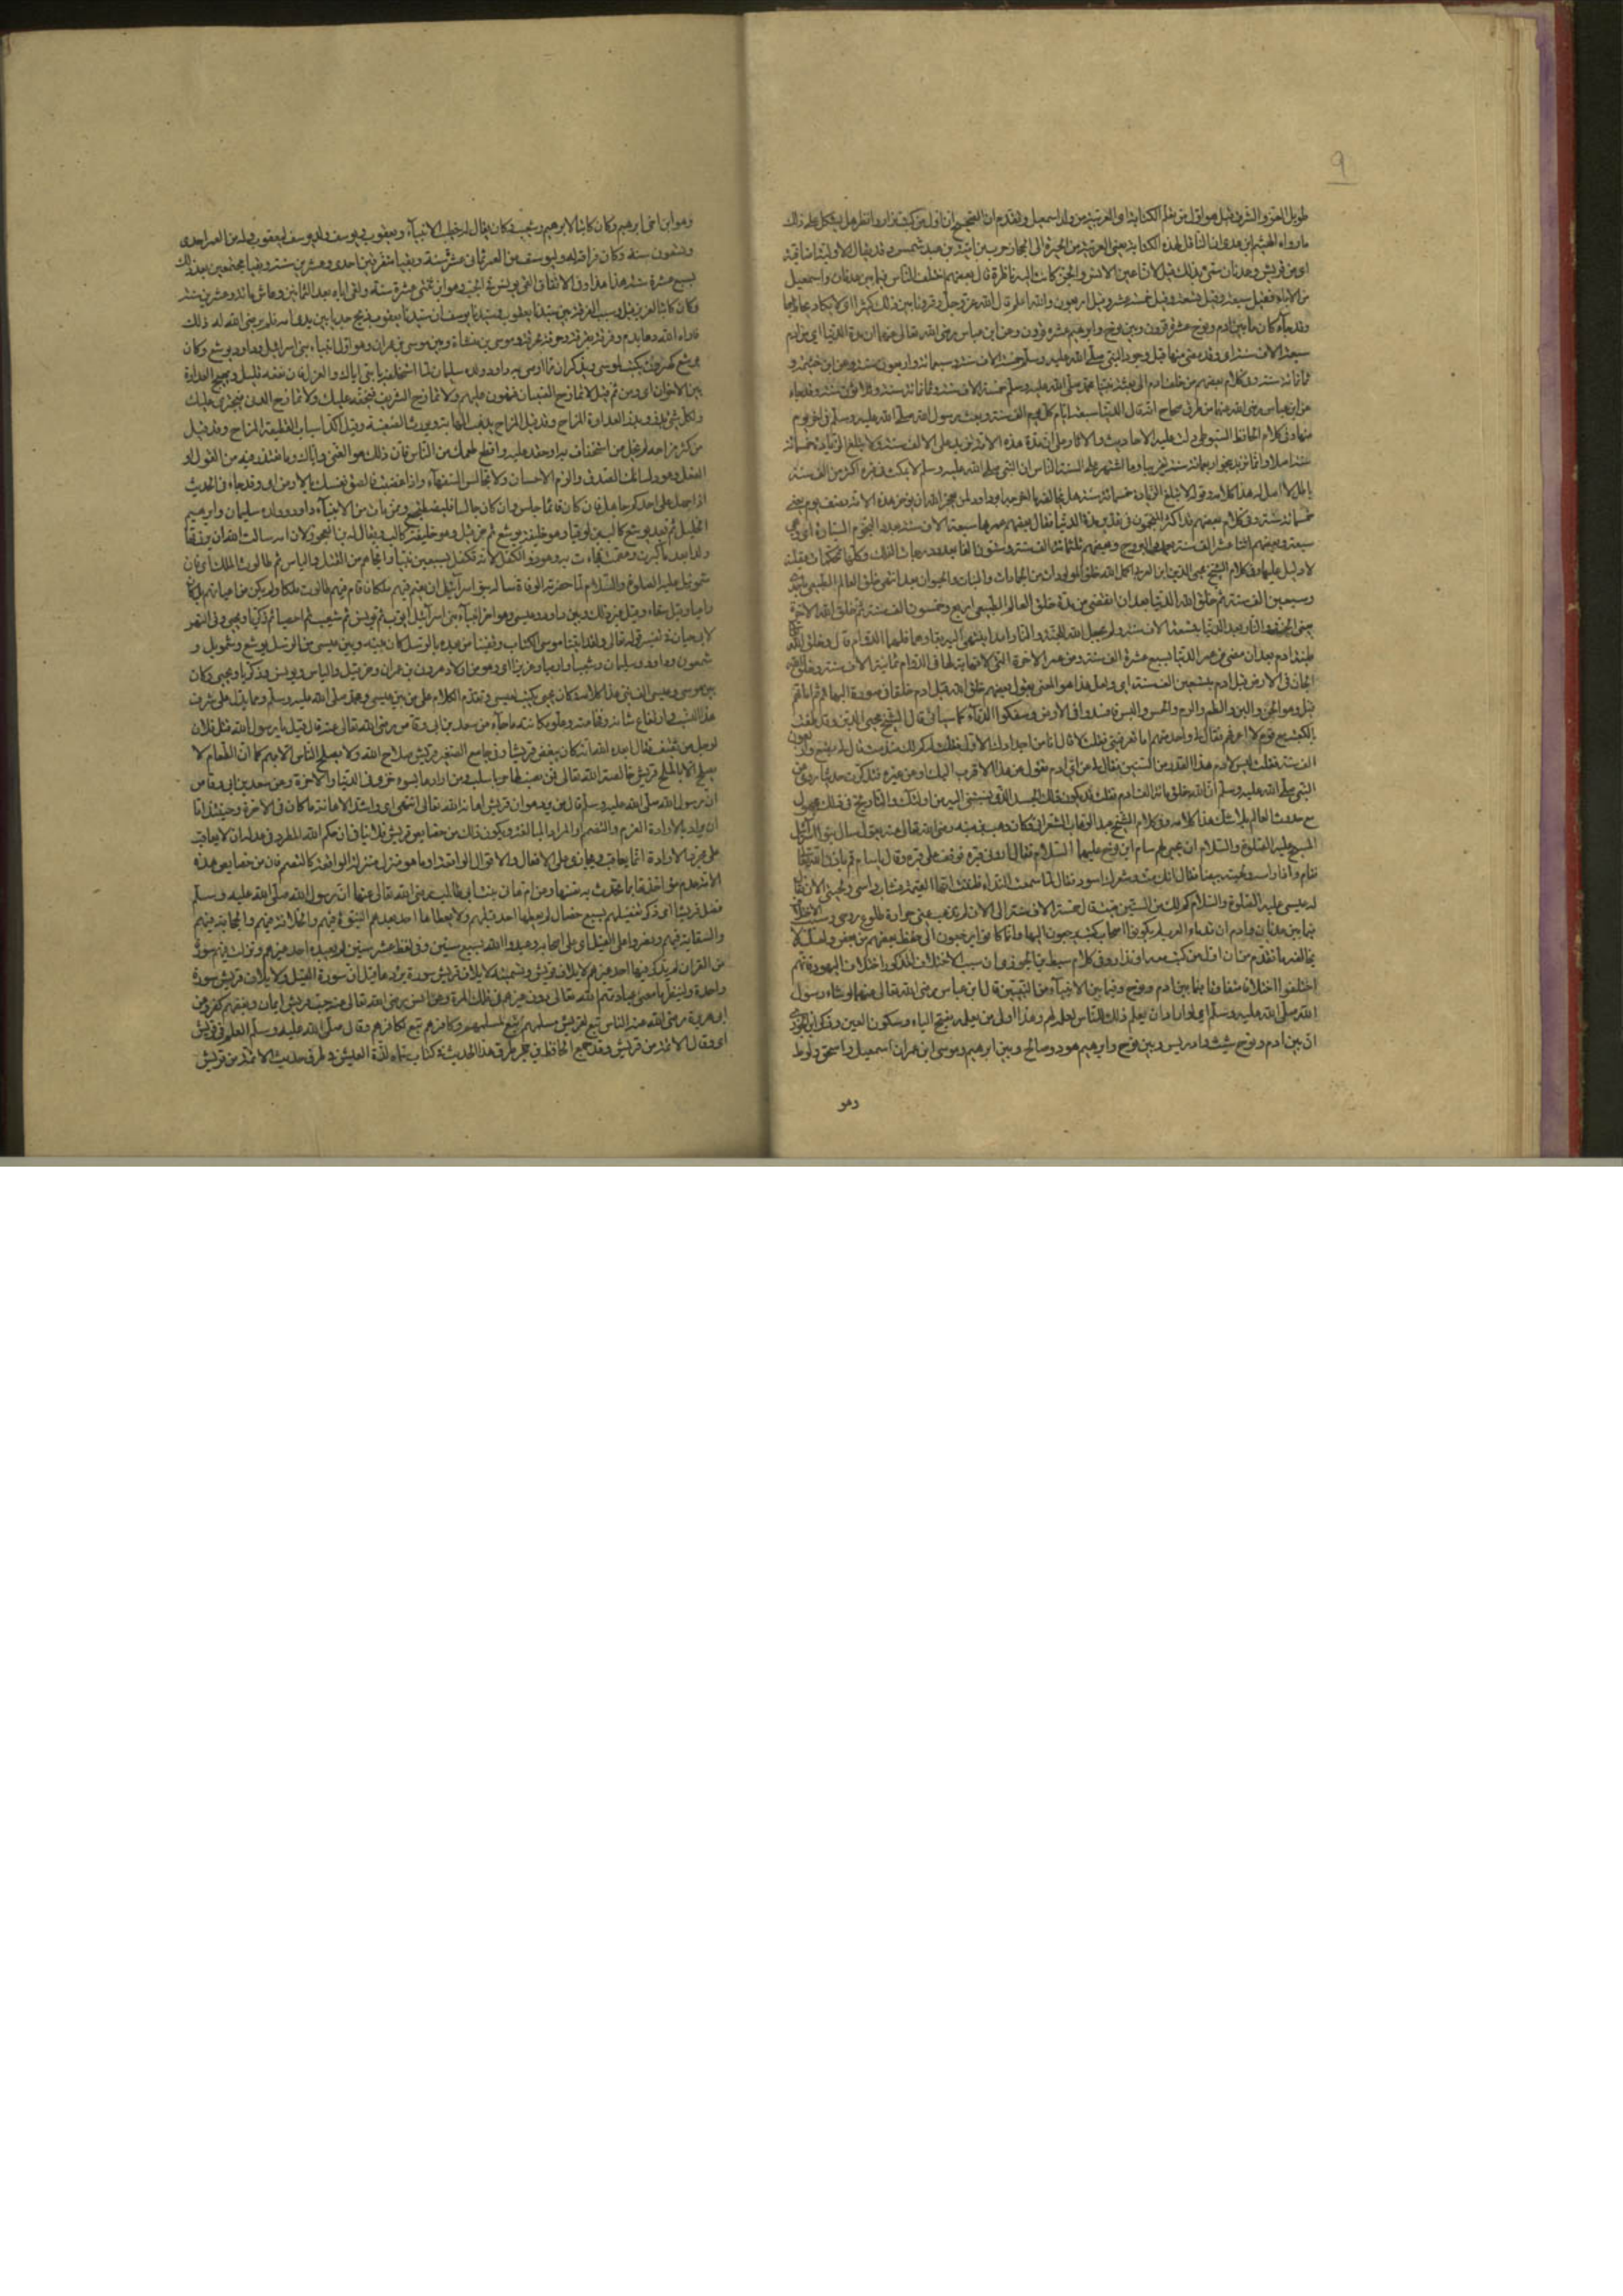 ٩
طويل العز والشرف قيل هو اول من تعلم الكتابة اى العربية من ولد اسمعيل وتقدم ان الصحيح ان اول من كتب نزار وانظر هل يشكل على ذلك
ما رواه الهيثم بن عدى ان الناقل لهذه الكتابة يعنى العربية من الحيرة الى الحجاز حرب بن امية بن عبد شمس وقد يقال الاولية اضافية
اى من قريش وعدنان سمى بذلك قيل لان اعين الانس والجن كانت اليه ناظرة قال بعضهم اختلف الناس فيما بين عدنان واسمعيل
من الآباء فقيل سبعة وقيل تسعة وقيل خمسة عشر وقيل اربعون والله اعلم قال الله عز وجل وقرونا بين ذلك كثيرا اى لا يكاد يحاط بها
وقد جاء كان ما بين ادم ونوح عشرة قرون وبين نوح وابرهيم عشرة قرون وعن ابن عباس رضى الله تعالى عنهما ان مدة الدنيا اى من ادم
سبعة الاف سنة اى وقد مضى منها قبل وجود النبى صلى الله عليه وسلم خمسة الاف سنة وسبعمائة واربعون سنة وعن ابن خيثمة و
ثمانمائة سنة وفى كلام بعضهم من خلق ادم الى بعثة نبينا محمد صلى الله عليه وسلم خمسة الاف سنة وثمانمائة سنة وثلاثون سنة وقد جاء
عن ابن عباس رضى الله عنهما من طرق صحاح انه قال الدنيا سبعة ايام كل يوم الف سنة وبعث رسول الله صلى الله عليه وسلم فى اخر يوم
منها وفى كلام الحافظ السيوطى دلت عليه الاحاديث والاثار على ان مدة هذه الامة تزيد على الالف سنة ولا يبلغ الزيادة خمسمائة
سنة اصلا وانما تزيد بنحو اربعمائة سنة تقريبا وما اشتهر على السنة الناس ان النبى صلى الله عليه وسلم لا يمكث فى قبره اكثر من الف سنة
باطل لا اصل له هذا كلامه وقوله لا تبلغ الزيادة خمسمائة سنة هل يخالفه ما اخرجه ابو داود لن يعجز الله ان يؤخر هذه الامة نصف يوم يعنى
خمسمائة سنة وفى كلام بعضهم قد اكثر المنجمون فى تقدير مدة الدنيا فقال بعضهم عمرها سبعة الاف سنة بعدد النجوم السيارة اى وهى
سبعة وبعضهم اثنا عشر الف سنة بعدد البروج وبعضهم ثلثمائة الف سنة وستون الفا بعدد درجات الفلك وكلها تحكمات عقلية
لا دليل عليها وفى كلام الشيخ محيى الدين ابن العربى اكمل الله خلق المولدات من الجمادات والنبات والحيوان بعد انتهاء خلق العالم الطبيعى باحدى
وسبعين الف سنة ثم خلق الله الدنيا بعد ان انقضى من مدة خلق العالم الطبيعى اربع وخمسون الف سنة ثم خلق الله الاخرة
يعنى الجنة والنار بعد الدنيا بتسعة الاف سنة ولم يجعل الله للجنة والنار امدا ينتهى اليه بقاؤهما فلهما الدوام قال وخلق الله
طينة ادم بعد ان مضى من عمر الدنيا سبع عشرة الف سنة ومن عمر الاخرة التى لا نهاية لها فى الدوام ثمانية الاف سنة وخلق الله
الجان فى الارض قبل ادم بستين الف سنة اى ولعل هذا هو المعنى بقول بعضهم خلق الله قبل ادم خلقا فى صورة البهائم ثم اماتهم
قيل وهم الجن والبن والطم والرم والحس والبس فافسدوا فى الارض وسفكوا الدماء كما سيأتى قال الشيخ محيى الدين وقد طفت
بالكعبة مع قوم لا اعرفهم فقال لى واحد منهم اما تعرفنى فقلت لا قال انا من اجدادك الاول فقلت له كم لك منذ مت فقال لى بضع واربعون
الف سنة فقلت ليس لادم هذا القدر من السنين فقال لى عن اى ادم تقول عن هذا الاقرب اليك او عن غيره فتذكرت حديثا روى عن
النبى صلى الله عليه وسلم ان الله خلق مائة الف ادم فقلت قد يكون ذلك الجد الذى ينسبنى اليه من اولئك والتاريخ فى ذلك مجهول
مع حدوث العالم بلا شك هذا كلامه وفى كلام الشيخ عبد الوهاب الشعرانى وكان وهب بن منبه رضى الله تعالى عنه يقول سأل بنو اسرائيل
المسيح عليه الصلوة والسلام ان يحيى لهم سام ابن نوح عليهما السلام فقال ارونى قبره فوقف على قبره وقال يا سام قم باذن الله تعالى
فقام واذا راسه ولحيته بيضا فقال انك مت وشعرك اسود فقال لما سمعت النداء ظننت انها القيمة فشاب راسى ولحيتى الان فقال
له عيسى عليه الصلوة والسلام كم لك من السنين ميت قال خمسة الاف سنة الى الان لم تذهب عنى حرارة طلوع روحى وسبب الاختلاف
فيما بين عدنان وادم ان قدماء العرب لم يكونوا اصحاب كتب يرجعون اليها وانما كانوا يرجعون الى حفظ بعضهم من بعض ولعله لا
يخالفه ما تقدم من ان اول من كتب معد او نزار وفى كلام سبط ابن الجوزى ان سبب الاختلاف المذكور اختلاف اليهود فانهم
اختلفوا اختلافا متفاوتا فيما بين ادم ونوح وفيما بين الانبياء من السنين قال ابن عباس رضى الله تعالى عنهما لو شاء رسول
الله صلى الله عليه وسلم اى لو اراد ان يعلم ذلك للناس لعلمه لهم وهذا اولى من يعلمه بفتح الياء وسكون العين وذكر ابن الجوزى
ان بين ادم ونوح شيث وادريس وبين نوح وابرهيم هود وصالح وبين ابرهيم وموسى ابن عمران اسمعيل واسحق ولوط
وهو
وهو ابن اخى ابرهيم وكان كاتبا لابرهيم وشعيب وكان يقال له خطيب الانبياء ويعقوب ويوسف ولد يوسف ليعقوب وله من العمر احدى
وتسعون سنة وكان فراقه له وليوسف من العمر ثمانى عشر سنة وبقيا مفترقين احدى وعشرين سنة وبقيا مجتمعين بعد ذلك
سبع عشرة سنة هذا وفى الاتقان القى يوسف فى الجب وهو ابن ثنتى عشرة سنة ولقى اباه بعد الثمانين وعاش مائة وعشرين سنة
وكان كاتبا للعزيز قيل وسبب الفرقة بين سيدنا يعقوب وسيدنا يوسف ان سيدنا يعقوب ذبح جديا بين يدى امه فلم يرض الله له ذلك
فاراه الله دما بدم وفرقة بفرقة وحرقة بحرقة وموسى بن منشاة وبين موسى بن عمران وهو اول انبياء بنى اسرائيل وداود يوشع وكان
يوشع كهرون يكتب لموسى ويذكر ان مما اوصى به داود ولده سليمان لما استخلفه يا بنى اياك والهزل فان نفعه قليل ويهيج العداوة
بين الاخوان اى ومن ثم قيل لا تمازح الصبيان فتهون عليهم ولا تمازح الشريف فيحقد عليك ولا تمازح الدنى فيجترى عليك
ولكل شئ بذر وبذر العداوة المزاح وقد قيل المزاح يذهب المهابة ويورث الضغينة وقيل اكد اسباب القطيعة المزاح وقد قيل
من كثر مزاحه لم يخل من استخفاف به او حقد عليه واقطع طمعك من الناس فان ذلك هو الغنى واياك وما تعتذر منه من القول او
الفعل وعود لسانك الصدق والزم الاحسان ولا تجالس السفهاء واذا غضبت فالصق نفسك بالارض اى وقد جاء فى الحديث
اذا جهل على احدكم جاهل فان كان قائما جلس وان كان جالسا فليضطجع وممن مات من الانبياء داود وولده سليمان وابرهيم
الخليل ثم بعد يوشع كالب بن يوفنا وهو خليفة يوشع ثم حزقيل وهو خليفة كالب ويقال له ابن العجوز لان امه سألت الله ان يرزقها
ولدا بعد ما كبرت وعقمت فجاءت به وهو ذو الكفل لانه تكفل بسبعين نبيا وانجاهم من القتل والياس ثم طالوت الملك اى فان
شمويل عليه الصلوة والسلام لما حضرته الوفاة سأله بنو اسرائيل ان يقيم فيهم ملكا فاقام فيهم طالوت ملكا ولم يكن من اعيانهم بل كان
راعيا وقيل سقاء وقيل غير ذلك وبين داود وعيسى وهو اخر انبياء بنى اسرائيل ايوب ثم يونس ثم شعيا ثم احصيا ثم زكريا ويحيى وفى النهر
لابى حيان فى تفسير قوله تعالى ولقد اتينا موسى الكتاب وقفينا من بعده بالرسل كان بينه وبين عيسى من الرسل يوشع وشمويل و
شمعون وداود وسليمان وشعيا وارميا وعزير اى وهو من اولاد هرون بن عمران وحزقيل والياس ويونس وزكريا ويحيى وكان
بين موسى وعيسى الف نبى هذا كلامه وكان يحيى يكتب لعيسى وتقدم الكلام على من بين عيسى ومحمد صلى الله عليه وسلم ومما يدل على شرف
هذا النسب وارتفاع شانه وفخامته وعلو مكانته ما جاء عن سعد بن ابى وقاص رضى الله تعالى عنه قال قيل يا رسول الله قتل فلان
لرجل من ثقيف فقال ابعده الله انه كان يبغض قريشا وفى جامع الصغير قريش صلاح الله ولا يصلح الناس الا بهم كما ان الطعام لا
يصلح الا بالملح قريش خالصة الله تعالى فمن نصب لها حربا سلب ومن ارادها بسوء خزى فى الدنيا والاخرة وعن سعد بن ابى وقاص
ان رسول الله صلى الله عليه وسلم قال من يرد هوان قريش اهانه الله تعالى انتهى اى واشد الاهانة ما كان فى الاخرة وحينئذ اما
ان يراد بالارادة العزم والتصميم او المراد المبالغة ويكون ذلك من خصايص قريش فلا ينافى ان حكم الله المطرد فى عدله ان لا يعاقب
على مجرد الارادة انما يعاقب ويجازى على الافعال والاقوال الواقعة او ما هو منزل منزلة الواقعة كالتصميم فان من خصايص هذه
الامة عدم مؤاخذتها بما تحدث به نفسها وعن ام هانى بنت ابى طالب رضى الله تعالى عنها ان رسول الله صلى الله عليه وسلم
فضل قريشا اى ذكر تفضيلهم بسبع خصال لم يعطها احد قبلهم ولا يعطاها احد بعدهم النبوة فيهم والخلافة فيهم والحجابة فيهم
والسقاية فيهم ونصروا على الفيل اى على اصحابه وعبدوا الله سبع سنين وفى لفظ عشر سنين لم يعبده احد غيرهم ونزلت فيهم سورة
من القران لم يذكر فيها احد غيرهم لايلاف قريش وتسمية لايلاف قريش سورة يرد ما قيل ان سورة الفيل ولايلاف قريش سورة
واحدة ولينظر ما معنى عبادتهم الله تعالى دون غيرهم فى تلك المدة وعن انس رضى الله تعالى عنه حب قريش ايمان وبغضهم كفر وعن
ابى هريرة رضى الله عنه الناس تبع لقريش مسلمهم تبع لمسلمهم وكافرهم تبع لكافرهم وقال صلى الله عليه وسلم العلم فى قريش
اى وقال الائمة من قريش وقد جمع الحافظ ابن حجر طرق هذا الحديث فى كتاب سماه لذة العيش فى طرق حديث الائمة من قريش